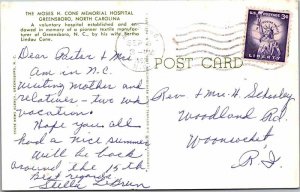 THE MOSES H. CONE MEMORIAL HOSPITAL
GREENSBORO, NORTH CAROLINA
A voluntary hospital established and en-
dowed in memory of a pioneer textile manufac-
turer of Greensboro, N. C., by his wife Bertha
Lindau Cone.
Dear Pastor & Mrs
Am in N.C.
visiting mother and
relatives - two wk
vacation.
Hope you all
had a nice summer
will be back
around the 15th
Best regards,
Stella
POST CARD
3¢
LIBERTY
Rev & Mrs H
Woodland Rd.
Woonsocket
R.I.